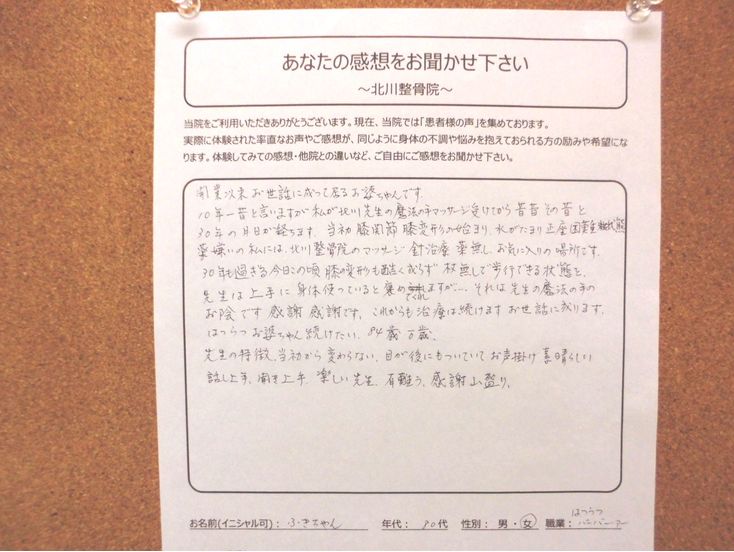 あなたの感想をお聞かせ下さい
～北川整骨院～
当院をご利用いただきありがとうございます。現在、当院では「患者様の声」を集めております。
実際に体験された率直なお声やご感想が、同じように身体の不調や悩みを抱えておられる方の励みや希望にな
ります。体験してみての感想・他院との違いなど、ご自由にご感想をお聞かせ下さい。
開業以来 お世話に成って居る お婆ちゃんです。
10年一昔と言いますが 私が北川先生の魔法の手マッサージ受けてから 昔昔 その昔と
30年の月日が経ちます。当初 膝関節 膝変形の始まり、水がたまり 正座困難
薬嫌いの私には、北川整骨院のマッサージ 針治療 薬無し お気に入りの場所です。
30年も過ぎる今日この頃 膝変形も酷くならず 杖無しで歩行できる状態と、
先生は 上手に 身体使っていると 褒めてくれますが… それは先生の魔法の手の
お陰です 感謝 感謝です。これからも治療は続けます お世話に成ります。
はつらつ お婆ちゃん 続けたい、84歳 万歳、
先生の特徴、当初から 変わらない、目が後にもついていて お声掛け 素晴らしい
話し上手、聞き上手 楽しい先生、有難う、感謝 山盛り、
お名前(イニシャル可)： ふきちゃん 年代： 80代 性別： 男・女 職業： はつらつ